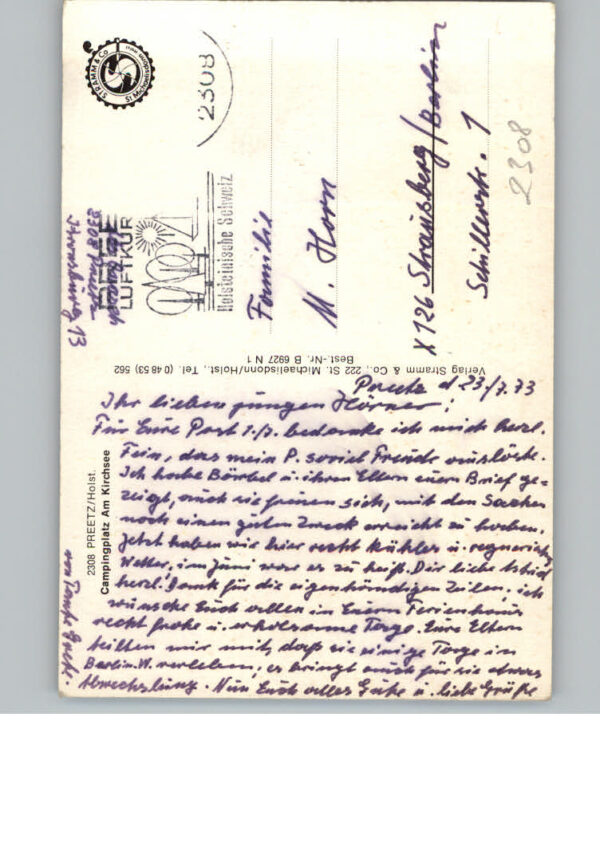 STRAMM & Co
St. Michaelisdonn
2308
PREETZ
LUFTKURORT
Holsteinische Schweiz
2308 Preetz
13
Familie
M. Horn
X 126 Strausberg/Berlin
Schillerstr. 1
2308
Verlag Stramm & Co., 222 St. Michaelisdonn/Holst., Tel. (0 48 53) 562
Best.-Nr. B 6927 N 1
2308 PREETZ/Holst.
Campingplatz Am Kirchsee
Preetz d 23/7.73
Ihr lieben jungen Hörner!
Für Eure Post 1./7. bedanke ich mich herzl.
Fein, das mein P. soviel Freude auslöste.
Ich habe Bärbel u. ihren Eltern euern Brief ge-
zeigt, auch sie freuen sich, mit den Sachen
noch einen guten Zweck erreicht zu haben.
Jetzt haben wir hier recht kühles u. regnerisches
Wetter, im Juni war es zu heiß. Dir liebe Astrid
herzl. Dank für die eigenhändigen Zeilen, ich
wünsche Euch allen in Euerm Ferienhaus
recht frohe u. erholsame Tage. Eure Eltern
teilten mir mit, daß sie einige Tage in
Berlin-W. verleben, es bringt auch für sie etwas
Abwechslung. Nun Euch alles Gute u. liebe Grüße
von Tante